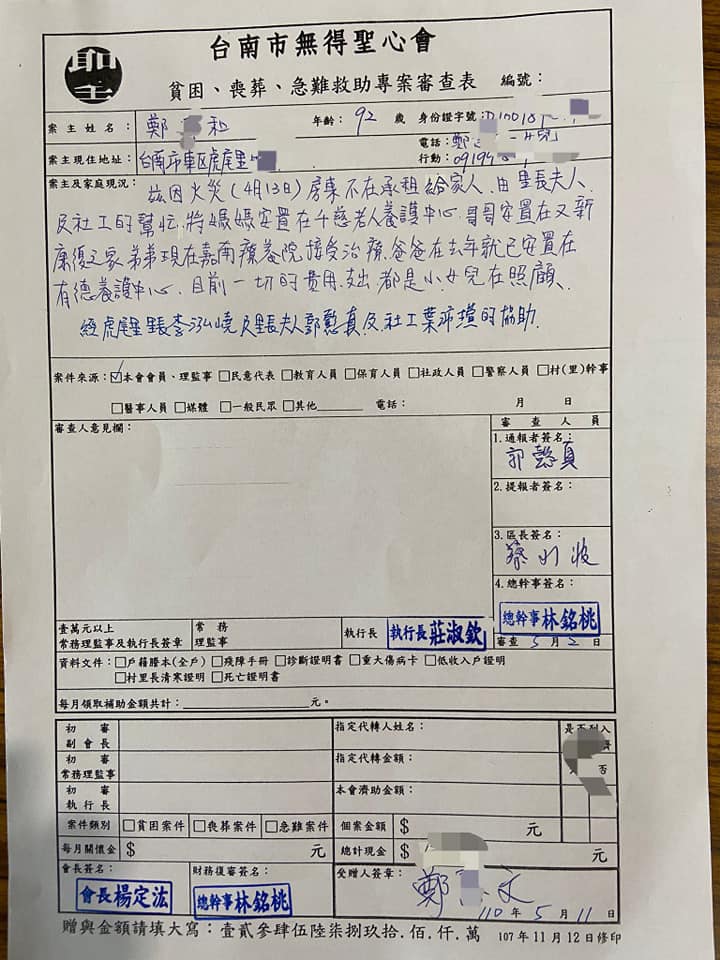 台南市無得聖心會
貧困、喪葬、急難救助專案審查表 編號：
案主姓名： 鄭 和 年齡： 92 歲 身份證字號：D10018
案主現住地址： 台南市東區虎尾里 電話：鄭 女兒
行動：0919
案主及家庭現況： 茲因火災(4月13日)房東不在承租給家人、由里長夫人、
及社工的幫忙,將媽媽安置在千慈老人養護中心、哥哥安置在又新
康復之家、弟弟現在嘉南療養院接受治療、爸爸在去年就已安置在
有德養護中心、目前一切的費用支出、都是小女兒在照顧、
經虎尾里里長李泓嶢及里長夫人郭懿真及社工葉沛瑄的協助.
案件來源：☑本會會員、理監事 □民意代表 □教育人員 □保育人員 □社政人員 □警察人員 □村(里)幹事
□醫事人員 □媒體 □一般民眾 □其他______ 電話： 月 日
審查人意見欄： 審查人員
1.通報者簽名：
郭懿真
2.提報者簽名：
3.區長簽名：
蔡
4.總幹事簽名：
總幹事林銘桃
壹萬元以上
常務理監事及執行長簽章
常務
理監事
執行長 執行長莊淑欽 審查 5月2日
資料文件：□戶籍謄本(全戶) □殘障手冊 □診斷證明書 □重大傷病卡 □低收入戶證明
□村里長清寒證明 □死亡證明書
每月領取補助金額共計：____________元。
初審
副會長
指定代轉人姓名： 是否列入
初審
常務理監事
指定代轉金額： 否
初審
執行長
本會濟助金額：
案件類別 □貧困案件 □喪葬案件 □急難案件 個案金額 $ 元
每月關懷金 $ 元 總計現金 $ 元
會長簽名： 財務復審簽名： 受贈人簽章：
會長楊定汯 總幹事林銘桃 鄭 文
110年5月11日
贈與金額請填大寫：壹貳參肆伍陸柒捌玖拾.佰.仟.萬 107年11月12日修印